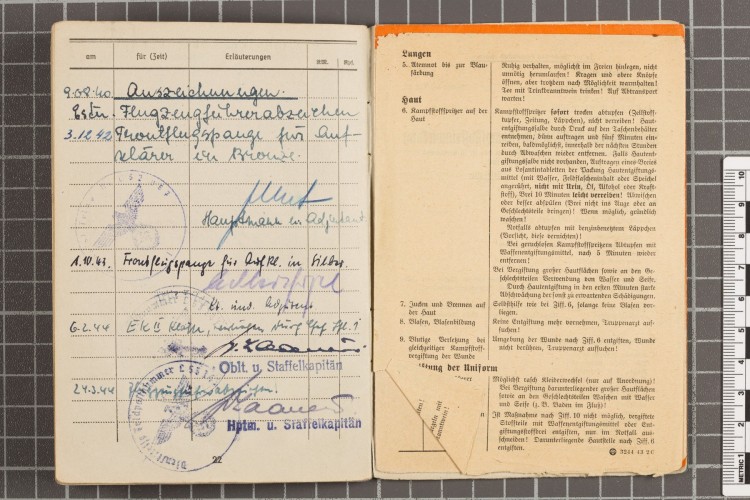 am für (Zeit) Erläuterungen
Auszeichnungen.
Flugzeugführerabzeichen
3.12.42 Frontflugspange für Auf-
klärer in Bronze.
Hauptmann u. Adjutant.
1.10.43. Frontflugspange für Aufkl. in Silber.
Lt. und Adjutant
6.2.44 EK II Klasse,
Oblt. u. Staffelkapitän
24.3.44
Hptm. u. Staffelkapitän
22
Lungen
5. Atemnot bis zur Blau-
färbung
Ruhig verhalten, möglichst im Freien hinlegen, nicht
unnötig herumlaufen! Kragen und obere Knöpfe
öffnen, aber trotzdem nach Möglichkeit warmhalten!
Tee mit Trinkbranntwein trinken! Auf Abtransport
warten!
Haut
6. Kampfstoffspritzer auf der
Haut
Kampfstoffspritzer sofort trocken abtupfen (Zellstoff-
tupfer, Zeitung, Läppchen), nicht verreiben! Haut-
entgiftungssalbe durch Druck auf den Taschenbehälter
entnehmen, dünn auftragen und fünf Minuten ein-
reiben, baldmöglichst, innerhalb der nächsten Stunden
durch Abwaschen wieder entfernen. Falls Hautent-
giftungssalbe nicht vorhanden, Auftragen eines Breies
aus Losantintabletten der Packung Hautentgiftungs-
mittel (mit Wasser, Feldflascheninhalt oder Speichel
angerührt, nicht mit Urin, Öl, Alkohol oder Kraft-
stoff), Brei 10 Minuten leicht verreiben! Abwischen
oder besser abspülen (Brei nicht ins Auge oder an
Geschlechtsteile bringen)! Wenn möglich, gründlich
waschen!
Notfalls abtupfen mit benzinbenetztem Läppchen
(Vorsicht, diese vernichten)!
Bei geruchlosen Kampfstoffspritzern Abtupfen mit
Waffenentgiftungsmittel, nach 5 Minuten wieder
entfernen!
Bei Vergiftung großer Hautflächen sowie an den Ge-
schlechtsteilen Verwendung von Wasser und Seife.
Durch Hautentgiftung in den ersten Minuten starke
Abschwächung der sonst zu erwartenden Schädigungen.
7. Jucken und Brennen auf
der Haut
Selbsthilfe wie bei Ziff. 6, solange keine Blasen vor-
liegen!
8. Blasen, Blasenbildung
Keine Entgiftung mehr vornehmen, Truppenarzt auf-
suchen!
9. Blutige Verletzung bei
gleichzeitiger Kampfstoff-
vergiftung der Wunde
Umgebung der Wunde nach Ziff. 6 entgiften, Wunde
nicht berühren, Truppenarzt aufsuchen!
der Uniform
Möglichst rasch Kleiderwechsel (nur auf Anordnung)!
Bei Vergiftung darunterliegender großer Hautflächen
sowie an den Geschlechtsteilen Waschen mit Wasser
und Seife (z. B. Baden im Fluß)!
Ist Maßnahme nach Ziff. 10 nicht möglich, vergiftete
Stoffteile mit Waffenentgiftungsmittel oder Ent-
giftungsstoffbrei entgiften, nur im Notfall aus-
schneiden! Darunterliegende Hautstelle nach Ziff. 6
entgiften.
3244 43 2 C
10
9
8
7
6
5
4
3
2
1
METRIC